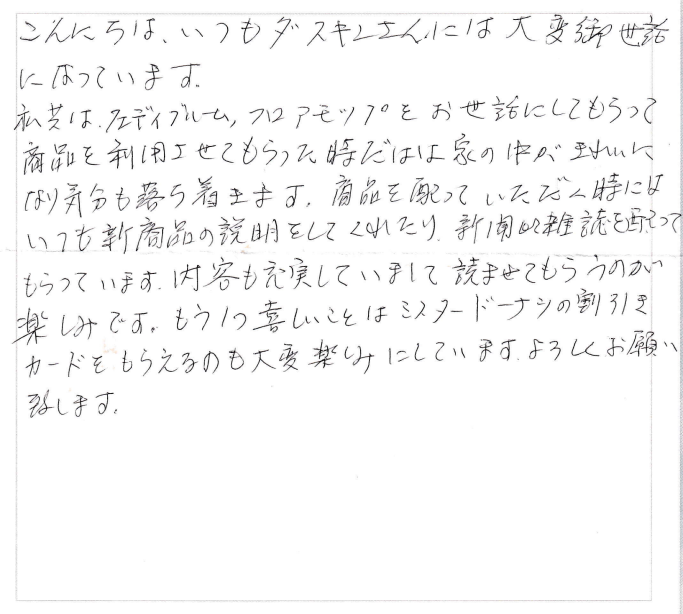 こんにちは、いつもダスキンさんには大変御世話
になっています。
私共は、フロアモップをお世話にしてもらって
商品を利用させてもらった時だはは家の中がきれいに
なり気分も落ち着きます。商品を配っていただく時には
いつも新商品の説明をしてくれたり、新聞や雑誌を配って
もらっています。内容も充実していまして読ませてもらうのが
楽しみです。もう1つ喜しいことはミスタードーナツの割引き
カードをもらえるのも大変楽しみにしています。よろしくお願い
致します。